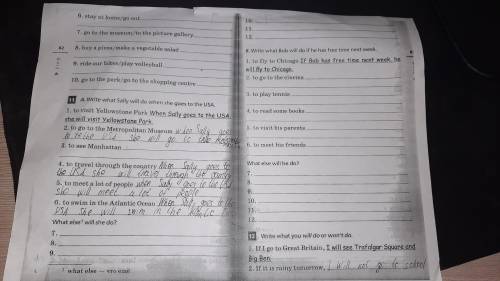 6. stay at home/go out
7. go to the museum/to the picture gallery
8. buy a pizza/make a vegetable salad
9. ride our bikes/play volleyball
10. go to the park/go to the shopping centre
62
11 A. Write what Sally will do when she goes to the USA.
1. to visit Yellowstone Park When Sally goes to the USA,
she will visit Yellowstone Park.
2. to go to the Metropolitan Museum when Sally goes
to the USA she will go to the
3. to see Manhattan
4. to travel through the country When Sally goes to
the USA she will travel through the country
5. to meet a lot of people when Sally goes to the USA
she will meet a lot of people
6. to swim in the Atlantic Ocean When Sally goes to the
USA she will swim in the
What else¹ will she do?
7.
8.
9.
¹ what else — что ещё
10.
11.
12.
B. Write what Bob will do if he has free time next week.
1. to fly to Chicago If Bob has free time next week, he
will fly to Chicago.
2. to go to the cinema
3. to play tennis
4. to read some books
5. to visit his parents
6. to meet his friends
What else will he do?
7.
8.
9.
10.
11.
12.
12 Write what you will do or won't do.
1. If I go to Great Britain, I will see Trafalgar Square and
Big Ben.
2. If it is rainy tomorrow, I will not go to school